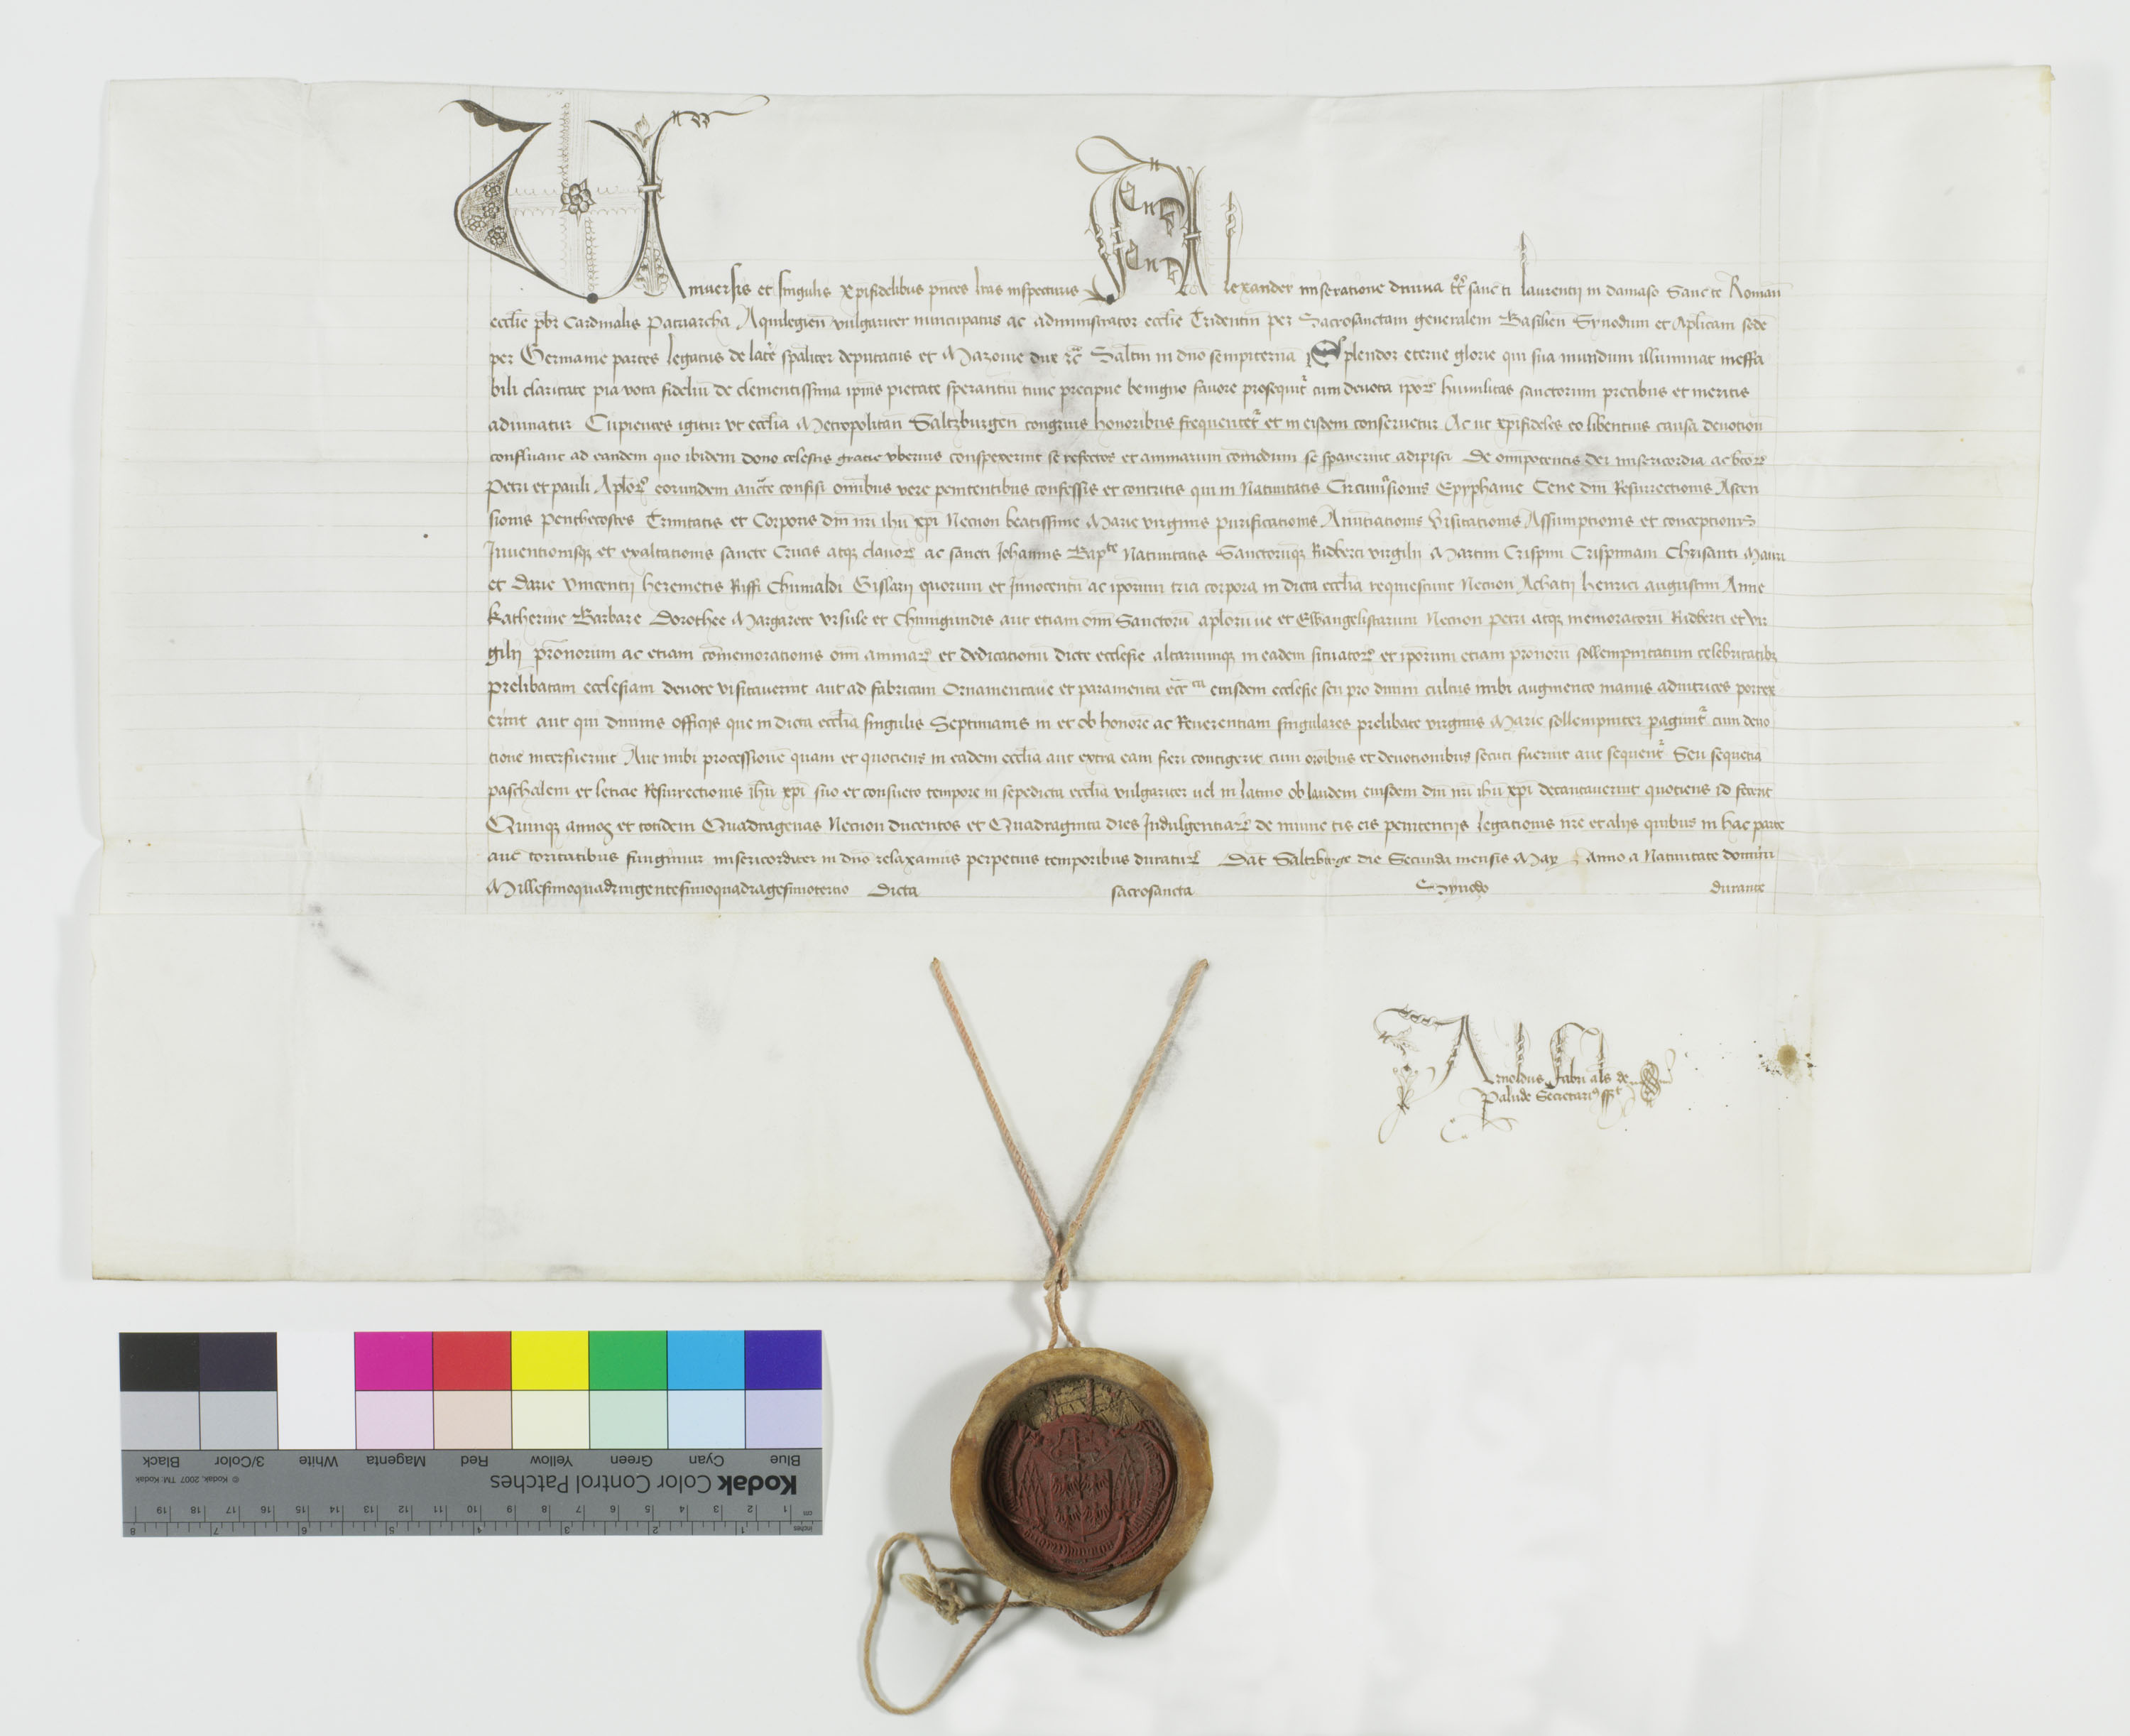 Vniuersis et singulis Xpifidelibus pñtes lras inspecturis Alexander miseratione diuina tt̃ sancti laurentij in damaso Sancte Roman̄
eccl̄ie pbr̃ Cardinalis Patriarcha Aquilegien̄ vulgariter nuncupatus ac administrator eccl̄ie Tridentin̄ per Sacrosanctam generalem Basilien̄ Synodum et Aplicam sedē
per Germanie partes legatus de latē spāliter deputatus et Mazouie dux rc̄ Salt̄m in dn̄o sempiternā Splendor eterne glorie qui sua mundum illuminat ineffa
bili claritate pia vota fideliū de clementissima ipīus pietate sperantiū tunc precipue benigno fauore prosequit̃ cum deuota ipōrꝫ humilitas sanctorum precibus et meritis
adiuuatur Cupientes igitur vt eccl̄ia Metropolitan̄ Saltzburgen̄ congruis honoribus frequentet̃ et in eisdem conseruetur Ac ut xp̄ifideles eo libentius causa deuotion̄
confluant ad eandem quo ibidem dono celestis gratie vberius conspexerint se refectos et animarum comodum se spauerint adipisci De omīpotentis dei misericordia ac btōrꝫ
Petri et pauli Aplōrꝫ eorundem auctt̄e confisi omībus vere penitentibus confessis et contritis qui in Natiuitatis Circumcisionis Epyphanie Cene dn̄i Resurrectionis Ascen
sionis Penthecostes Trinitatis et Corporis dn̄i nr̄i ihū xp̄i Necnon beatissime Marie virginis purificationis Anūtiationis Visitationis Assumptionis et conceptionis
Inuentionisqꝫ et exaltationis sancte Crucis atqꝫ clauorꝫ ac sancti Iohannis Bapte Natiuitatis Sanctorumqꝫ Rudberti virgilij Martini Crispini Crispiniani Chrisanti Mauri
et Darie Vincentij heremetis Ruffi Chunialdi Gislarij quorum et Innocentū ac ipōrum tria corpora in dicta eccl̄ia requiescunt Necnon Achatij henrici augustini Anne
Katherine Barbare Dorothee Margarete vrsule et Chunigundis aut etiam om̄i Sanctorū aplōrū ue et Ewangelistarum Necnon Petri atqꝫ memoratorū Rudberti et vir
gilij pr̄onorum ac etiam com̄emorationis om̄i animarꝫ et dedicationū dicte ecclesie altariumqꝫ in eadem situatorꝫ et ipōrum etiam pronorū sollempnitatum celebritatibꝫ
prelibatam ecclesiam deuote visitauerint aut ad fabricam Ornamentaue et paramenta eiusdem ecclesie seu pro diuini cultus inibi augmento manus adiutrices porrex
erint aut qui diuinis officijs que in dicta eccl̄ia singulis Septimanis in et ob honorē ac Reuerentiam singulares prelibate virginis Marie sollempniter pagunt̃ cum deuo
tione interfuerint Aut inibi processionē quam et quociens in eadem eccl̄ia aut extra eam fieri contigerit cum orōibus et deuotionibus secuti fuerint aut sequent̃ Seu sequētiā
paschalem et leticie Resurrectionis ihū xp̄i suo et consueto tempore in sepedicta eccl̄ia vulgariter uel in latino ob laudem eiusdem dn̄i nr̄i ihū xp̄i decantauerint quotiens id fecerīt
Quinqꝫ annos et totidem Quadragenas Necnon ducentos et Quadraginta dies Indulgentiarꝫ de iniunctis eis penitentijs legationis nr̄e et alijs quibus in hac parte
auctoritatibus fungimur misericorditer in dn̄o relaxamus perpetuis temporibus duraturꝫ Dat̄ Saltzburge die Secunda mensis May Anno a Natiuitate domini
Millesimoquadringentesimoquadragesimotertio Dicta sacrosancta Synodo durante
Arnoldus Fabri al̄s de
Palude Secretariꝰ sst
Blue Cyan Green Yellow Red Magenta White 3/Color Black
Kodak Color Control Patches
© Kodak, 2007 TM: Kodak
cm 1 2 3 4 5 6 7 8 9 10 11 12 13 14 15 16 17 18 19
inches 1 2 3 4 5 6 7 8